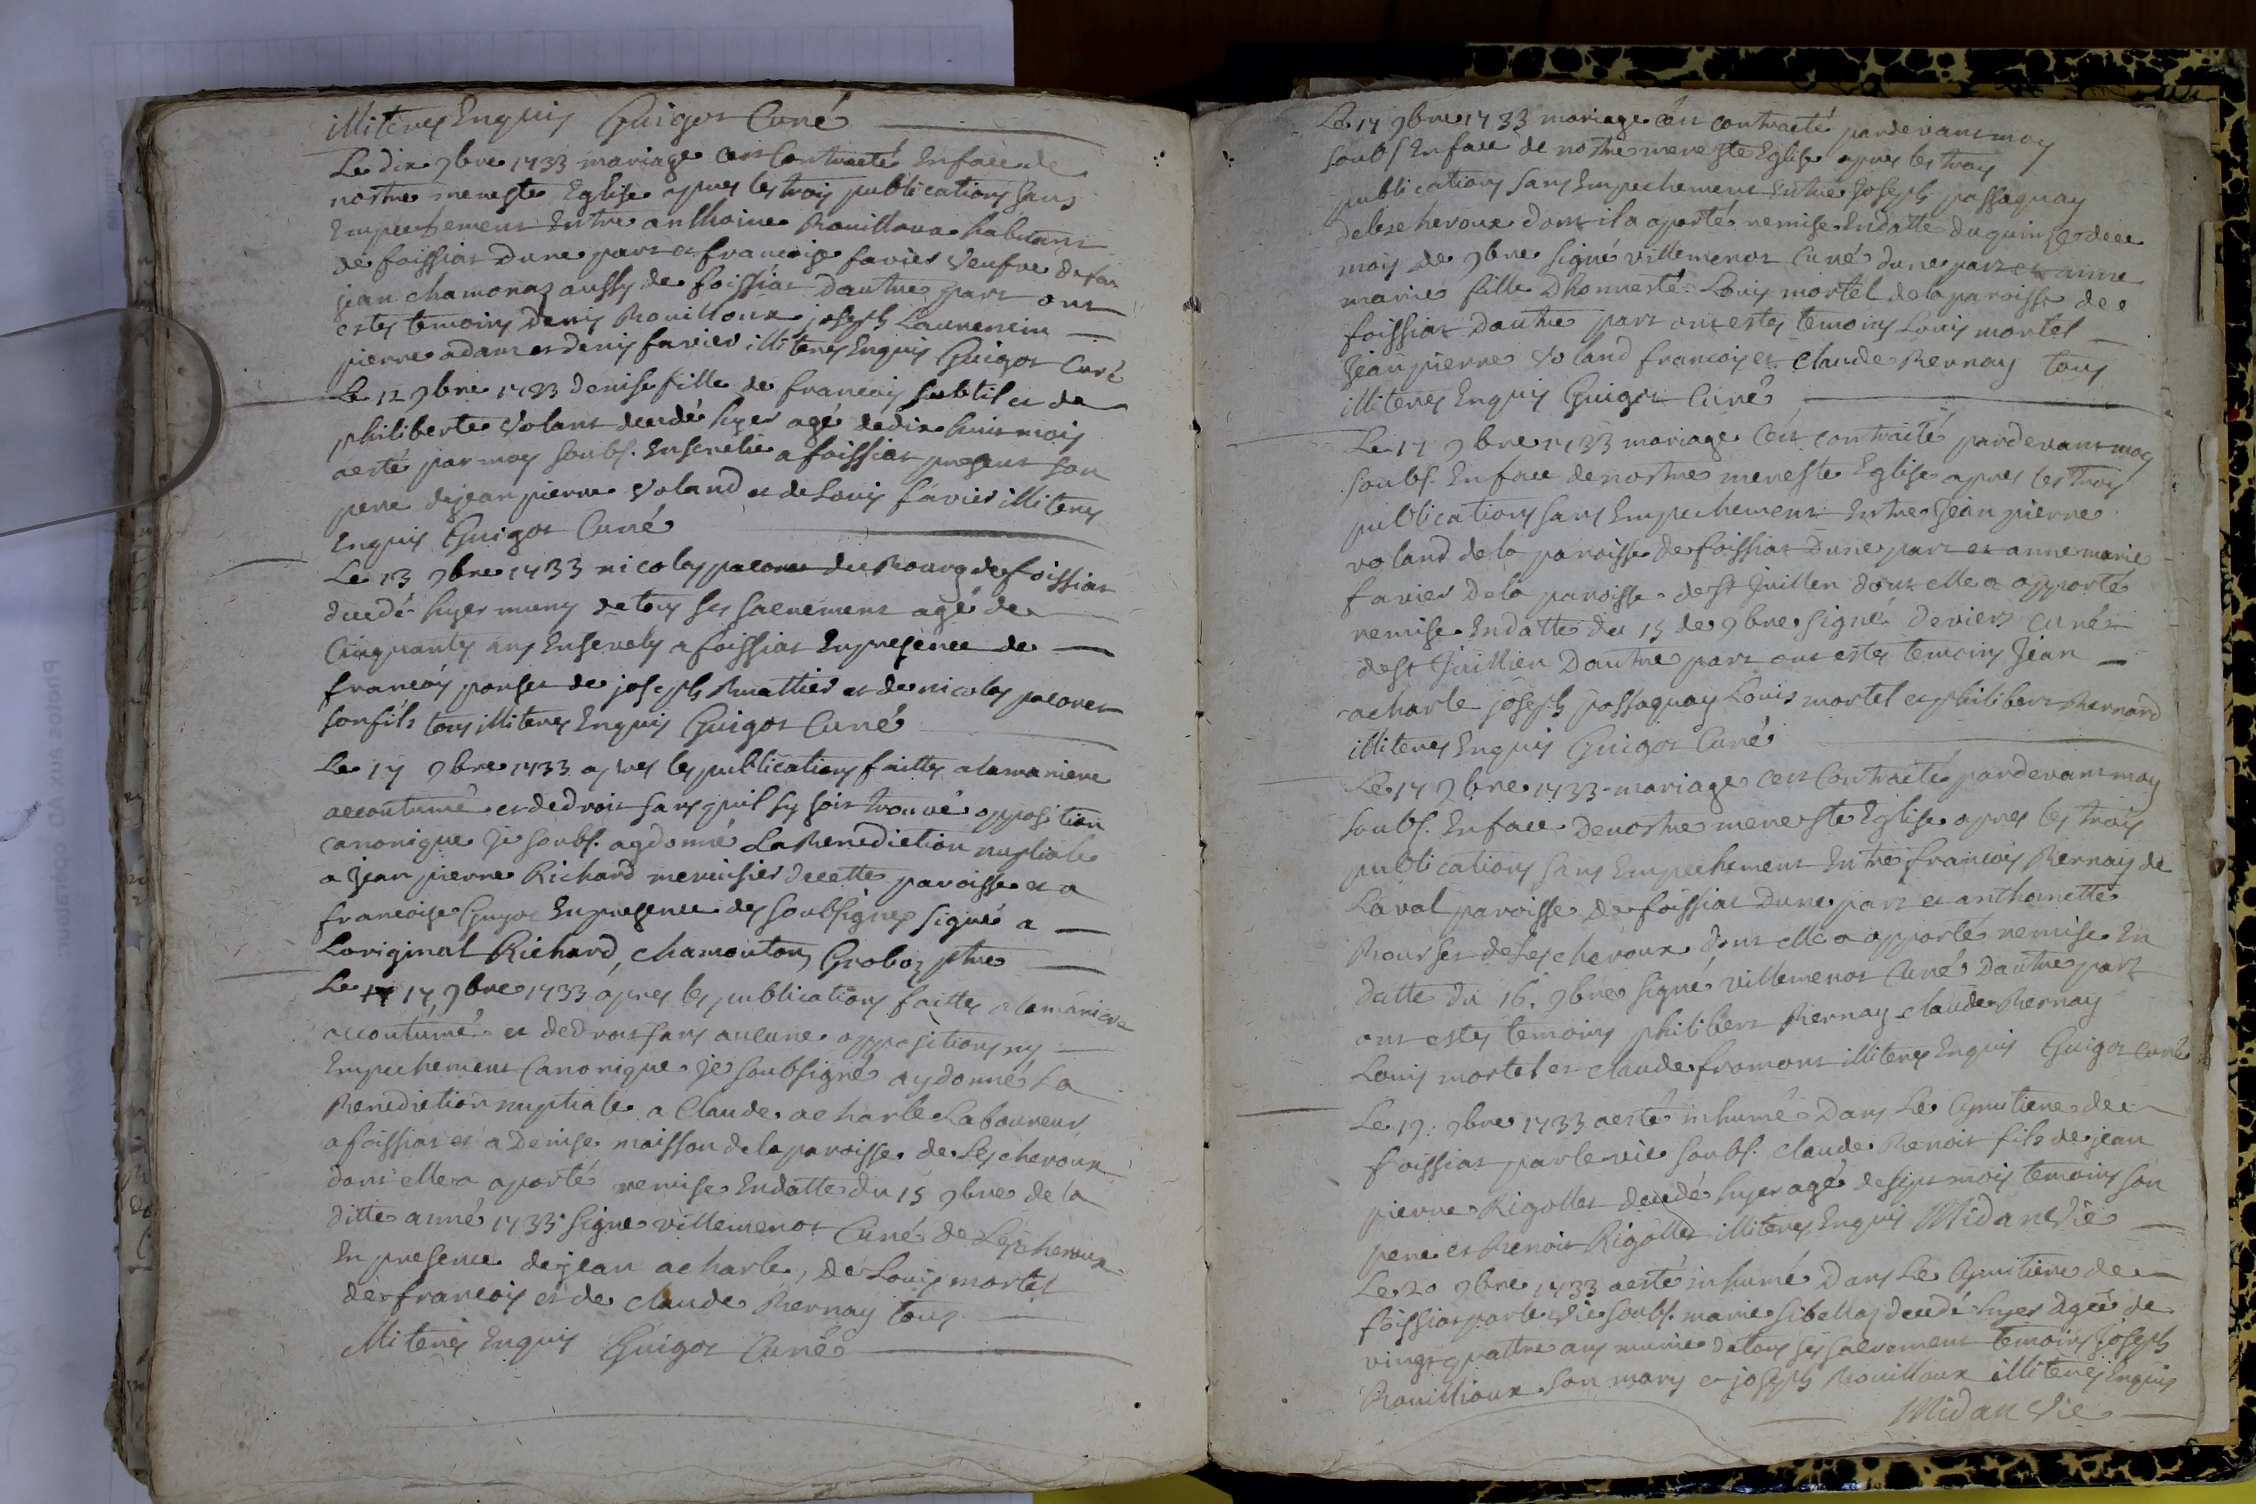 illiteres Enquis Guigot Curé
Le dix 9bre 1733 mariage cest Contracté En face de
nostre mere ste Eglise apres les trois publications sans
Empechement Entre anthoine Bouilloux habitant
de foissiat dune part et francoise favier veufve de feu
jean chamonaz aussy de foissiat dautre part ont
estes temoins denis Bouilloux joseph Laurencin
pierre adam et denis favier illiteres Enquis Guigot Curé
Le 12 9bre 1733 denise fille de francois subtil et de
philiberte volant decedé hyer agé de dix huit mois
a esté par moy soubs. Ensevelie a foissiat present son
pere de jean pierre voland et de Louis favier illiteres
Enquis Guigot Curé
Le 13 9bre 1733 nicolas pacoret du Bourg de foissiat
decedé hyer muny de tous ses sacrements agé de
Cinquantes ans Ensevely a foissiat En presence de
francois ponset de joseph Buattier et de nicolas pacoret
son fils tous illiteres Enquis Guigot Curé
Le 17 9bre 1733 apres les publications faittes a la maniere
accoutumé et de droit sans quil sy soit trouvé opposition
canonique Je soubs. ay donné La Benediction nuptiale
a Jean pierre Richard menuisier de cette paroisse et a
francoise Guyot En presence des soubsignes signé a
Loriginal Richard, chamouton, Groboz ptre
Le 17 9bre 1733 apres les publications faittes a la maniere
accoutumé et de droit sans aucune oppositions ny
Empechement Canonique Je soubsigné ay donné La
Benediction nuptiale a Claude acharle Laboureur
a foissiat et a Denise moisson de la paroisse de Lescheroux
dont elle a aporté remise En datte du 15 9bre de la
ditte anné 1733 signe villemenot Curé de Lescheroux
En presence de jean acharle, de Louis mortel
de francois et de claude Bernay tous
illiteres Enquis Guigot Curé
Le 17 9bre 1733 mariage cest contracté pardevant moy
soubs En face de nostre mere ste Eglise apres les trois
publications sans Empechement Entre Joseph passaquay
de lescheroux dont il a aporté remise En datte du quinse de ce
mois de 9bre signé villemenot Curé dune part et anne
marie fille Dhonneste Louis mortel de la paroisse de
foissiat dautre part ont estes temoins Louis mortel
Jean pierre voland francois et claude Bernay tous
illiteres Enquis Guigot Curé
Le 17 9bre 1733 mariage cest contracté pardevant moy
soubs. En face de nostre mere ste Eglise apres les trois
publications sans Empechement Entre Jean pierre
voland de la paroisse de foissiat dune part et anne marie
favier de la paroisse de st Juillen dont elle a apporté
remise En datte du 15 de 9bre signé deviers curé
de st Juillien dautre part ont estes temoins Jean
acharle joseph passaquay Louis mortel et philibert Bernard
illiteres Enquis Guigot Curé
Le 17 9bre 1733 mariage cest Contracté pardevant moy
soubs. En face de nostre mere ste Eglise apres les trois
publications sans Empechement Entre francois Bernay de
Laval paroisse de foissiat dune part et anthoinette
Bourset de Lescheroux dont elle a apporté remise En
datte du 16. 9bre signé villemenot Curé dautre part
ont estes temoins philibert Bernay claude Bernay
Louis mortel et claude fromont illiteres Enquis Guigot Curé
Le 19. 9bre 1733 a esté inhumé Dans Le Cymitiere de
foissiat par le vic soubs. claude Benoit fils de jean
pierre Rigollet decedé hyer agé de sept mois temoins son
pere et Benoit Rigollet illiteres Enquis Midan Vic
Le 20 9bre 1733 a esté inhumé Dans Le Cymitiere de
foissiat par le vic soubs. marie sibellaz decedé hyer Agée de
vingt quattre ans munie de tous ses sacrements temoins joseph
Bouillioux son mary et joseph Bouilloux illiteres Enquis
Midan Vic